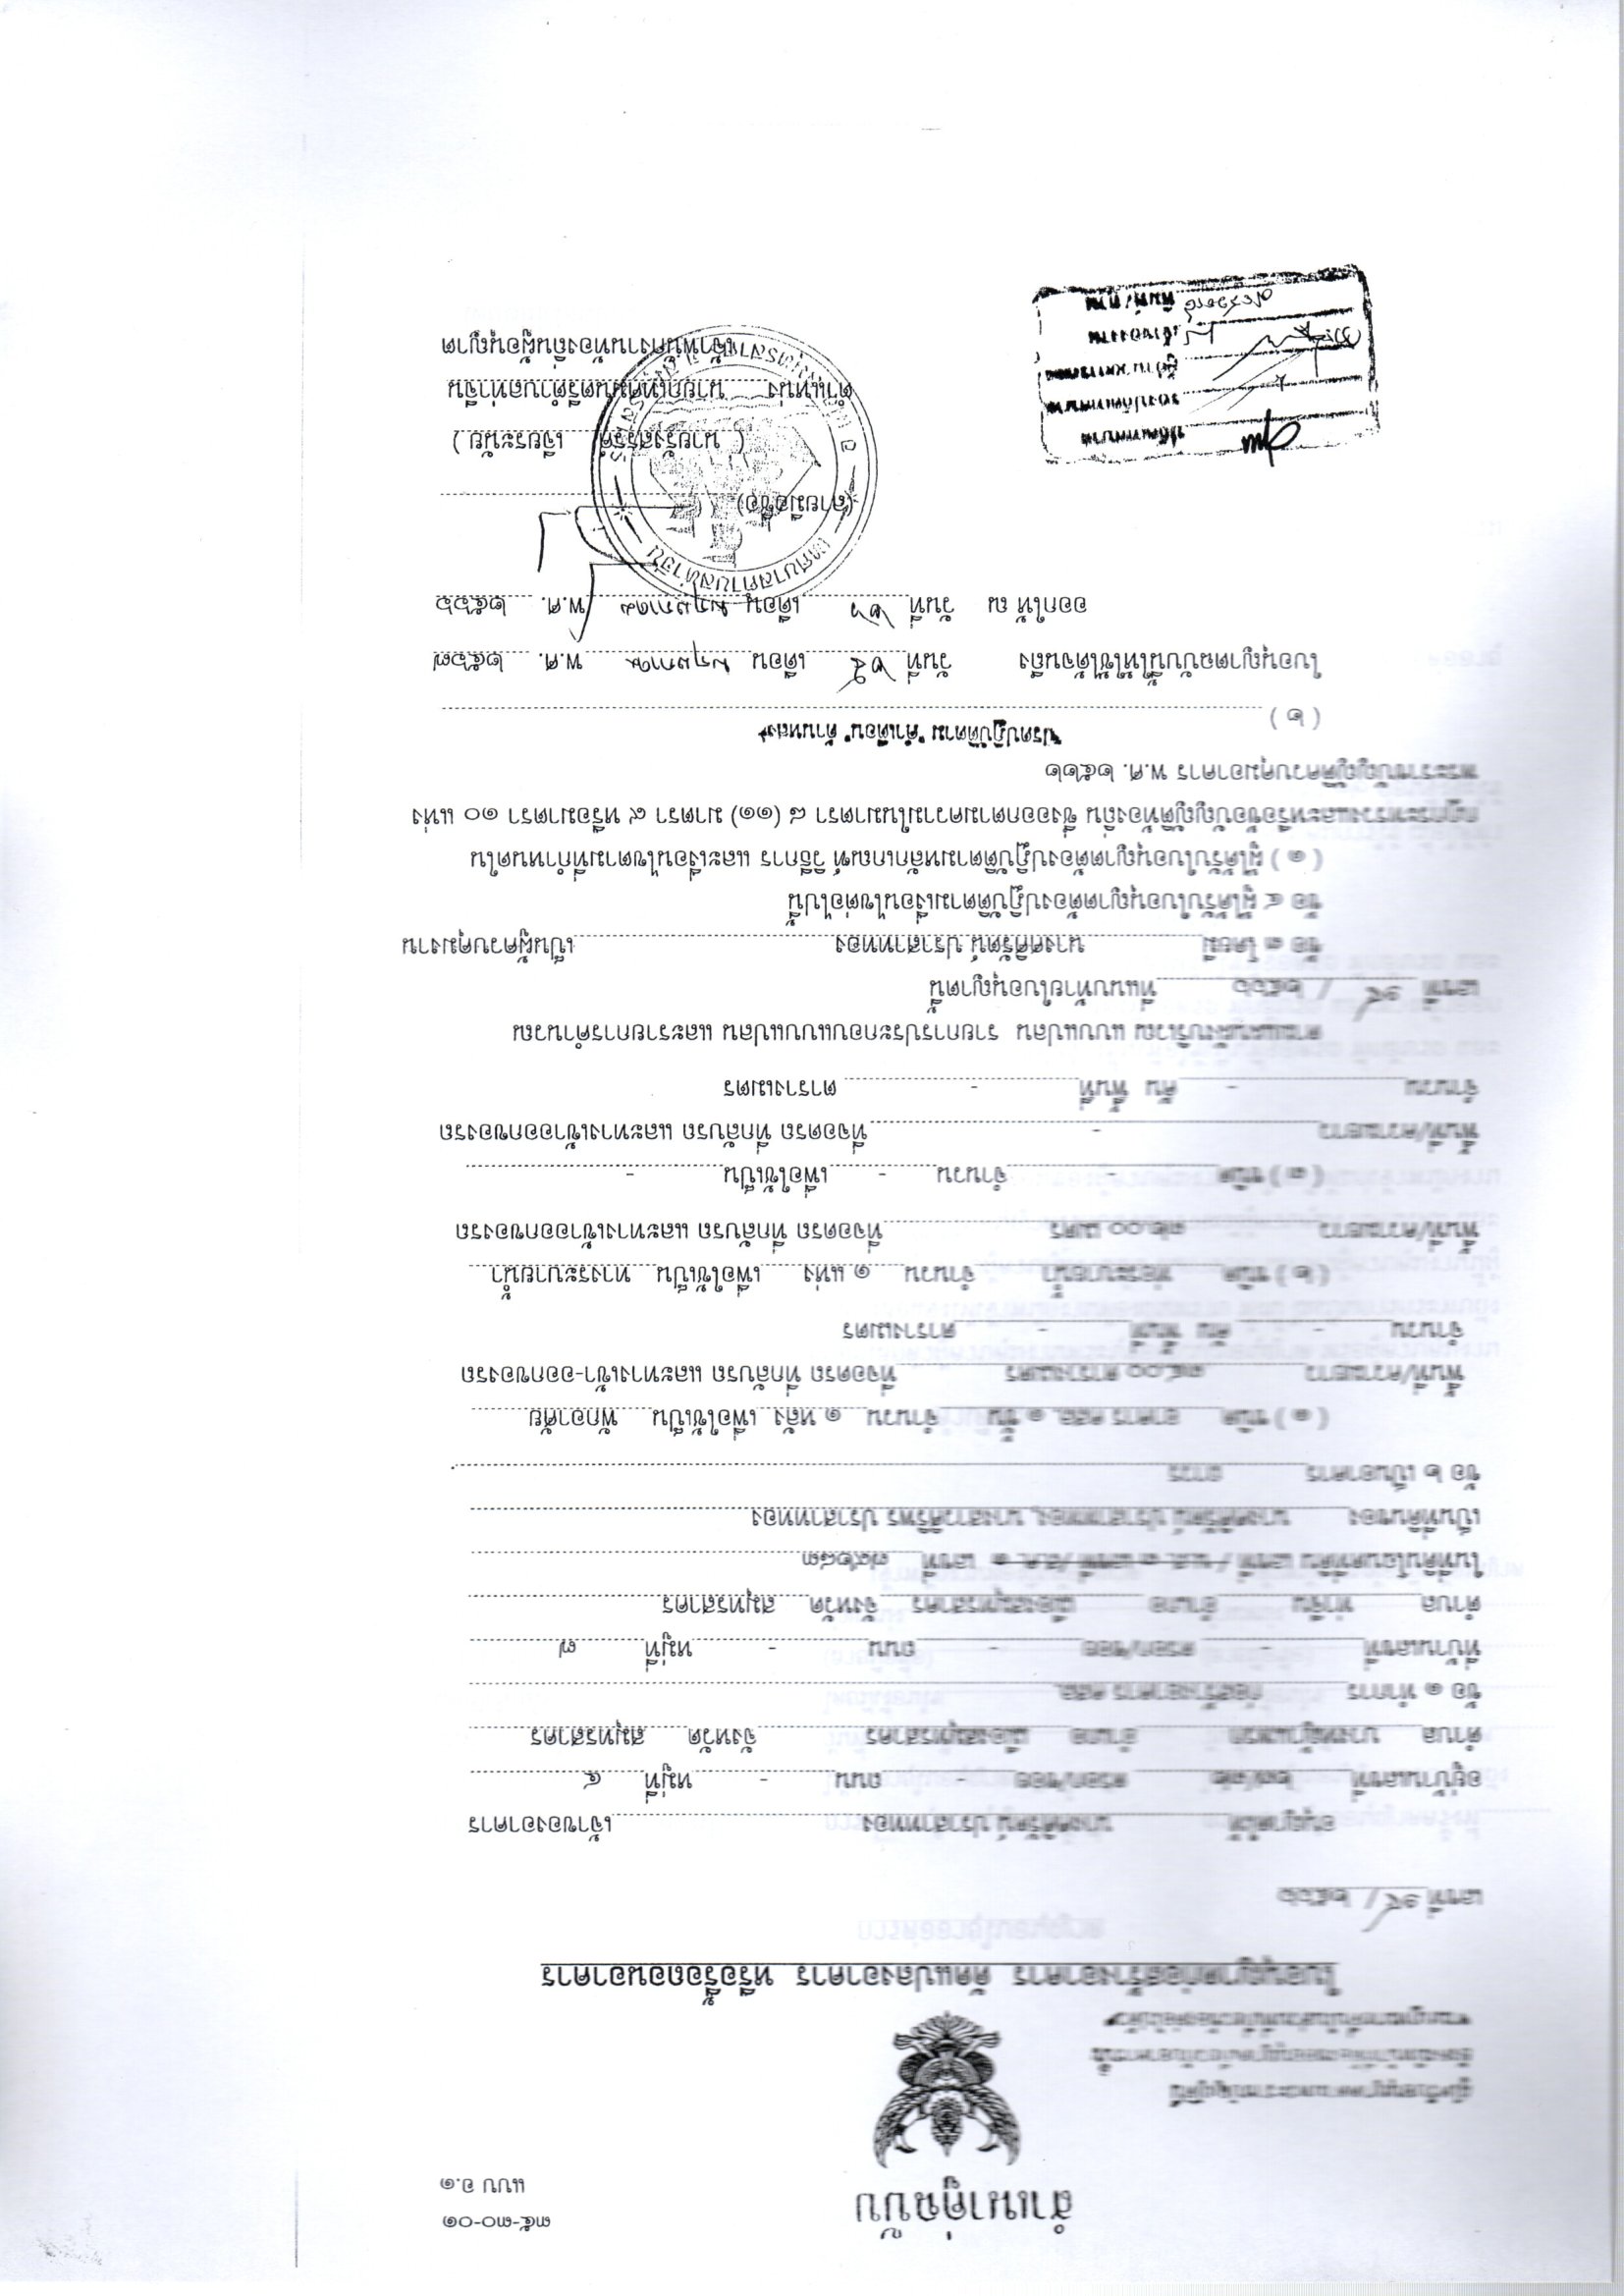 ๓๕-๓๐-๐๑
แบบ อ.๑
สำเนาคู่ฉบับ
ใบอนุญาตก่อสร้างอาคาร ดัดแปลงอาคาร หรือรื้อถอนอาคาร
เลขที่ ๑๙ / ๒๕๖๖
อนุญาตให้ นางศศิรัศม์ ปราสาททอง เจ้าของอาคาร
อยู่บ้านเลขที่ ตรอก/ซอย - ถนน - หมู่ที่ ๔
ตำบล บางหญ้าแพรก อำเภอ เมืองสมุทรสาคร จังหวัด สมุทรสาคร
ข้อ ๑ ทำการ ก่อสร้างอาคาร คสล.
ที่บ้านเลขที่ - ตรอก/ซอย - ถนน - หมู่ที่ ๗
ตำบล ท่าจีน อำเภอ เมืองสมุทรสาคร จังหวัด สมุทรสาคร
ในที่ดินโฉนดที่ดิน เลขที่ / น.ส. ๓ เลขที่ / ส.ค. ๑ เลขที่ ๗๙๒๘๓
เป็นที่ดินของ นางศศิรัศม์ ปราสาททอง, นางสาวศิริพร ปราสาททอง
ข้อ ๒ เป็นอาคาร ถาวร
( ๑ ) ชนิด อาคาร คสล. ๑ ชั้น จำนวน ๑ หลัง เพื่อใช้เป็น พักอาศัย
พื้นที่/ความยาว ตารางเมตร ที่จอดรถ ที่กลับรถ และทางเข้า-ออกของรถ
จำนวน - คัน พื้นที่ - ตารางเมตร
( ๒ ) ชนิด ท่อระบายน้ำ จำนวน ๑ แห่ง เพื่อใช้เป็น ทางระบายน้ำ
พื้นที่/ความยาว ๓๒.๐๐ เมตร ที่จอดรถ ที่กลับรถ และทางเข้าออกของรถ
( ๓ ) ชนิด - จำนวน - เพื่อใช้เป็น -
พื้นที่/ความยาว - ที่จอดรถ ที่กลับรถ และทางเข้าออกของรถ
จำนวน - คัน พื้นที่ - ตารางเมตร
ตามแผนผังบริเวณ แบบแปลน รายการประกอบแบบแปลน และรายการคำนวณ
เลขที่ ๑๙ / ๒๕๖๖ ที่แนบท้ายใบอนุญาตนี้
ข้อ ๓ โดยมี นางศศิรัศม์ ปราสาททอง เป็นผู้ควบคุมงาน
ข้อ ๔ ผู้ได้รับใบอนุญาตต้องปฏิบัติตามเงื่อนไขต่อไปนี้
( ๑ ) ผู้ได้รับใบอนุญาตต้องปฏิบัติตามหลักเกณฑ์ วิธีการ และเงื่อนไขตามที่กำหนดใน
กฎกระทรวงและหรือข้อบัญญัติท้องถิ่น ซึ่งออกตามความในมาตรา ๘ (๑๑) มาตรา ๙ หรือมาตรา ๑๐ แห่ง
พระราชบัญญัติควบคุมอาคาร พ.ศ. ๒๕๒๒
"โปรดปฏิบัติตาม "คำเตือน" ด้านหลัง"
( ๒ )
ใบอนุญาตฉบับนี้ให้ใช้ได้จนถึง วันที่ ๒๕ เดือน พฤษภาคม พ.ศ. ๒๕๖๗
ออกให้ ณ วันที่ ๒๖ เดือน พฤษภาคม พ.ศ. ๒๕๖๖
เทศบาลตำบลท่าจีน
(ลายมือชื่อ)
( นายรังสรรค์ เจียระนัย )
ตำแหน่ง นายกเทศมนตรีตำบลท่าจีน
เจ้าพนักงานท้องถิ่นผู้อนุญาต
ปลัดเทศบาล
รองปลัดเทศบาล